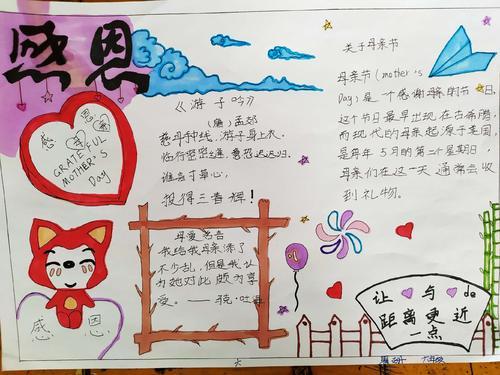 感恩
感恩
母亲
GRATEFUL
MOTHER'S
Day
《游子吟》
(唐)孟郊
慈母手中线,游子身上衣,
临行密密缝,意恐迟迟归。
谁言寸草心,
报得三春辉!
关于母亲节
母亲节(mother's
Day)是一个感谢母亲的节日,
这个节日最早出现在古希腊,
而现代的母亲起源于美国,
是每年5月的第二个星期日,
母亲们在这一天通常会收
到礼物。
母爱名言
我给我母亲添了
不少乱,但是我认
为她对此颇为享
受。——
感恩
让 与 de
距离更近
一点